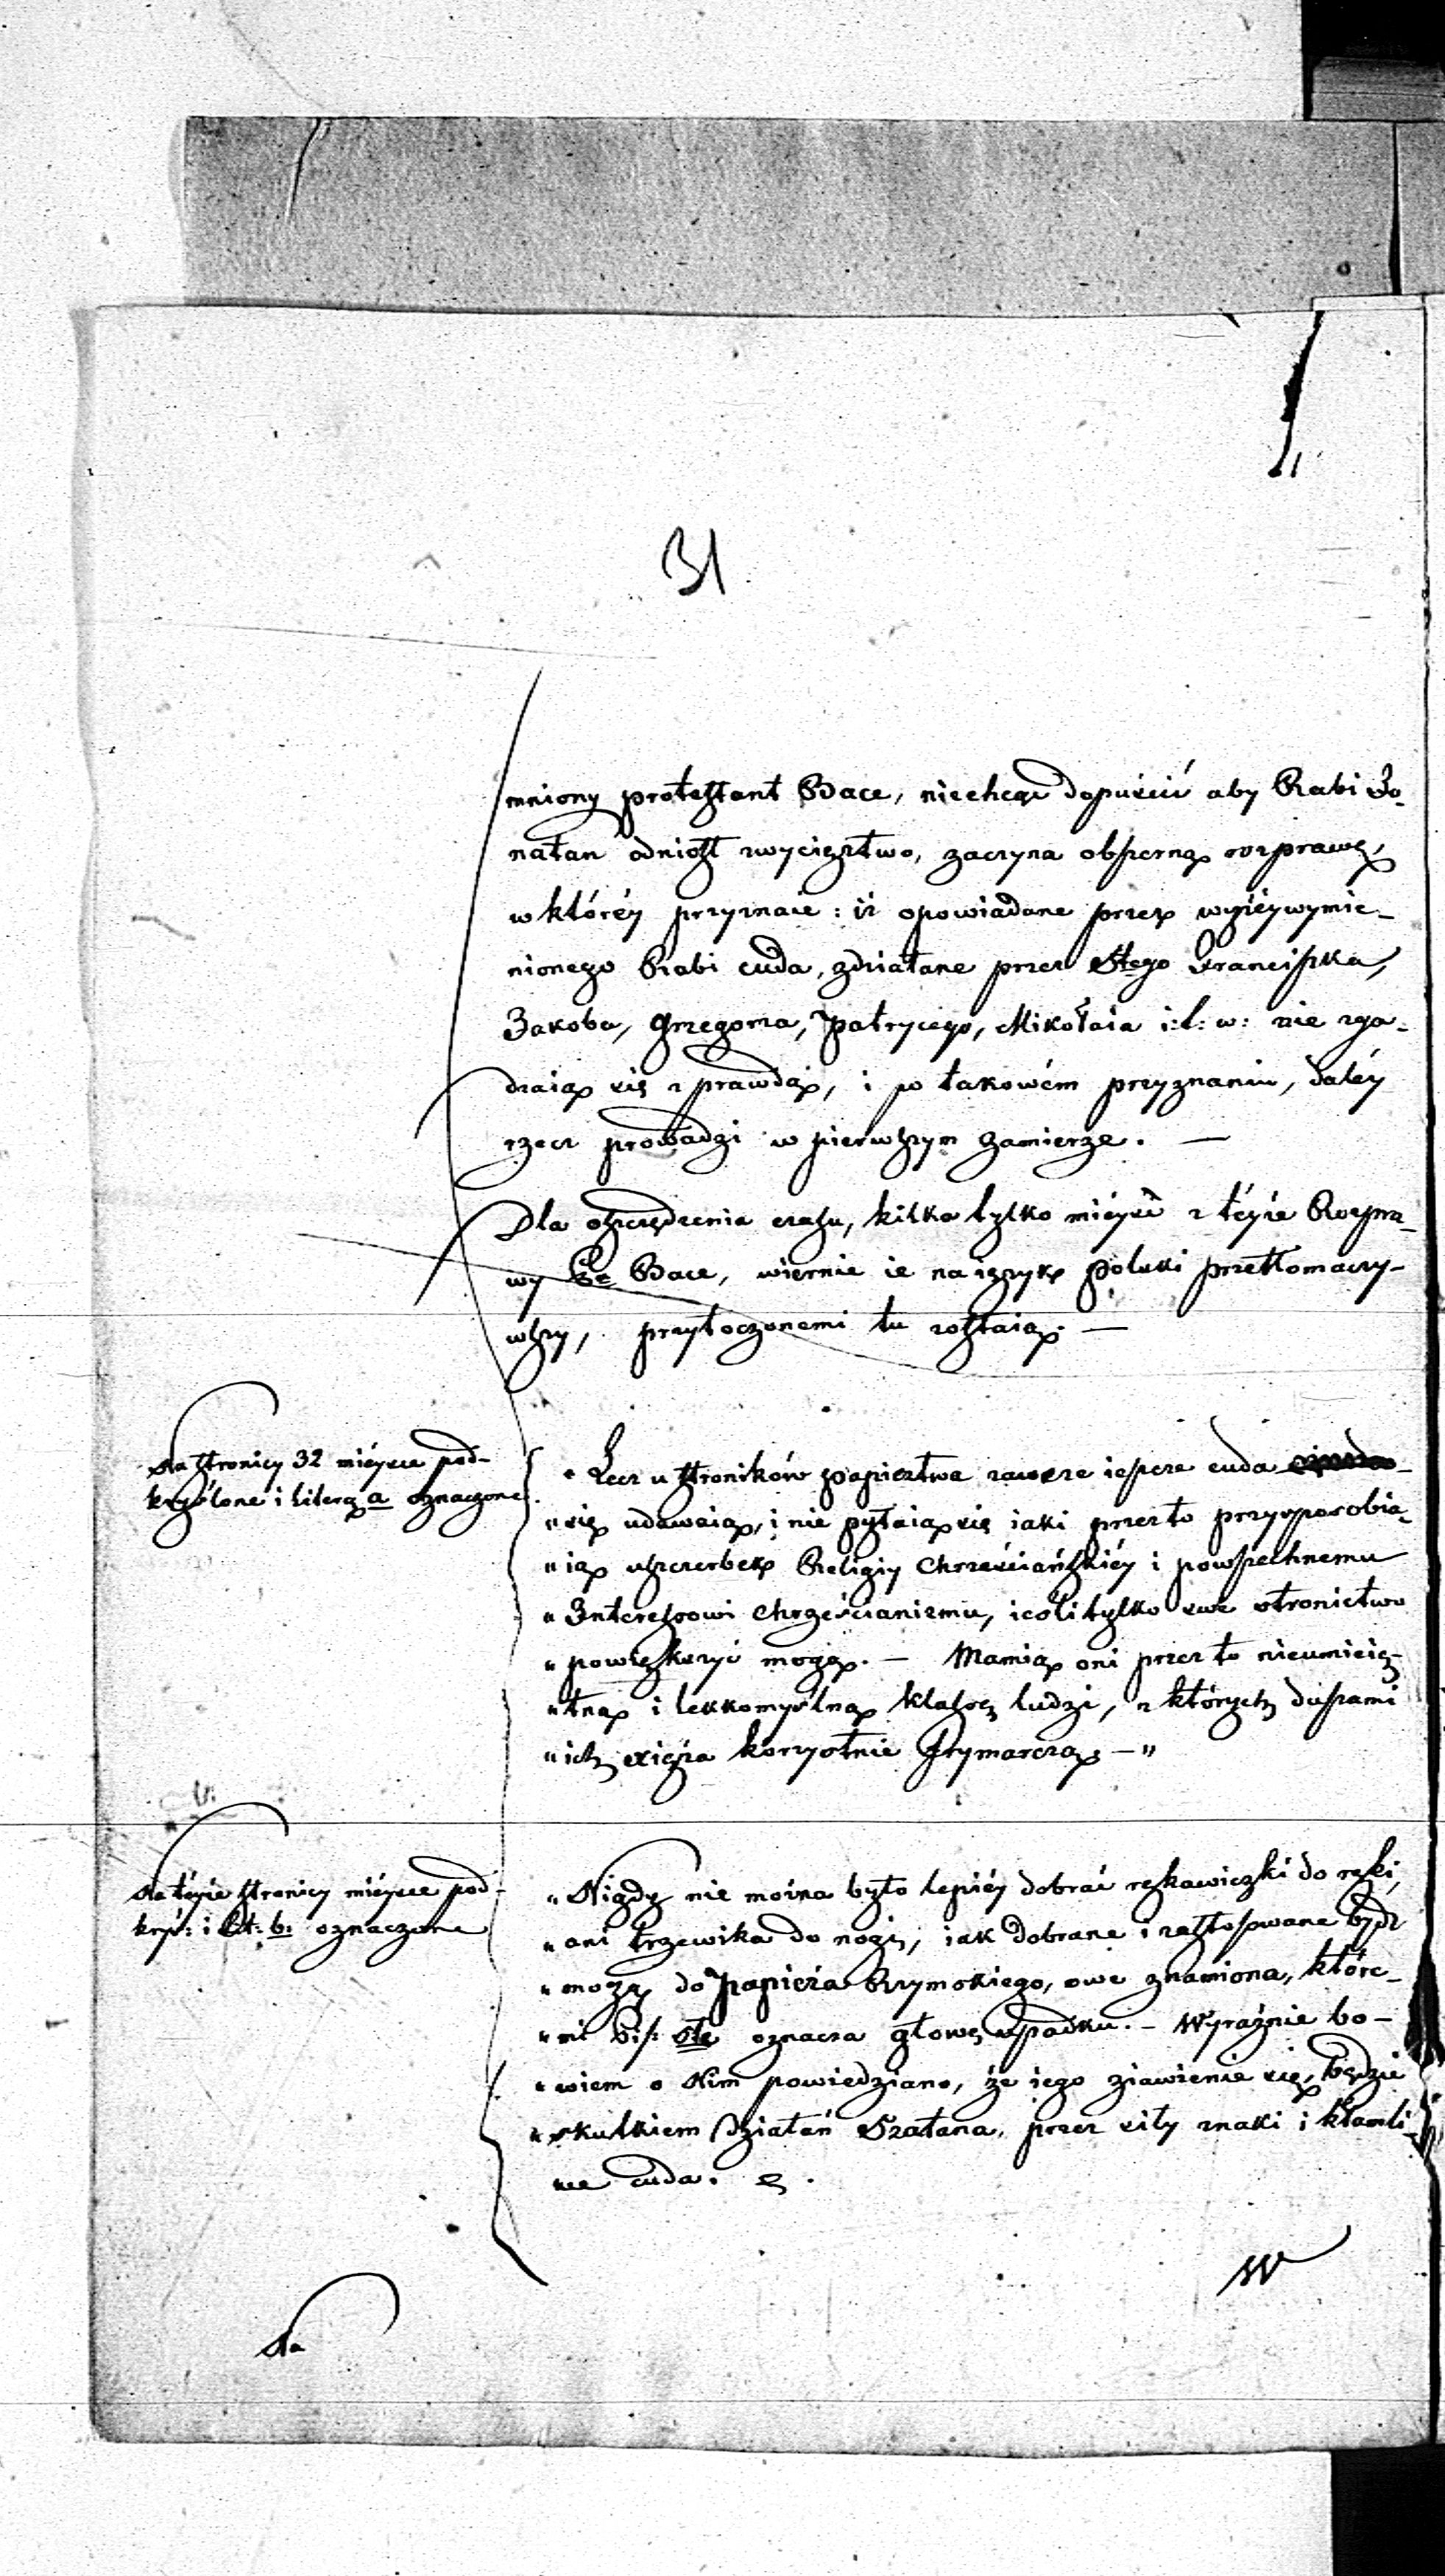 31
mniony protestant Bace, niechcąc dopuścić aby Rabi Jo-
natan odniosł zwycięztwo, zaczyna obszerną rozprawę,
w któréy przyznaie: iż opowiadane przez wyżéywymie-
nionego Rabi cuda, zdziałane przez Stego Franciszka,
Jakoba, Grzegorza, Patrycego, Mikołaia i: t: w: nie zga-
dzaią się z prawdą, i po takowém przyznaniu, daléy
rzecz prowadzi w pierwszym zamierze. —
Dla oszczędzenia czasu, kilka tylko mieysc z téyże Rozpra-
wy Bace, wiernie ie na ięzyk polski przetłomaczy-
wszy, przytoczonemi tu zostaią. —
Na stronicy 32 mieysce pod-
kryślone i literą a oznaczone.
„Lecz u stroników papieztwa zawsze ieszcze cuda
„się udawaią, i nie pytaią się iaki przez to przysposobia-
„ią uszczerbek Religiy Chrześciańskiéy i powszechnemu
„Interessowi chrześcianizmu, ieśli tylko swe stronictwo
„powiększyć mogą. — Mamią oni przez to nieumieię-
„tną i lekkomyślną klassę ludzi, z których duszami
„ich xięża korzystnie frymarczą. — "
Na téyże stronicy mieysce pod-
kryś: i lit: b: oznaczone
„Nigdy nie można było lepiéy dobrać rękawiczki do ręki,
„ani trzewika do nogi, iak dobrane i zastosowane bydź
„mogą do Papieża Rzymskiego, owe znamiona, które-
„mi Pis: Ste oznacza głowę upadku. — Wyraźnie bo-
„wiem o Nim powiedziano, że iego ziawienie się, będzie
„skutkiem działań Szatana, przez siły znaki i kłamli-
we cuda.
W
Na